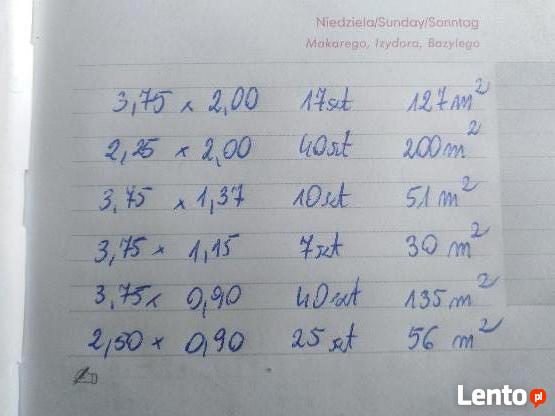 Niedziela/Sunday/Sonntag
Makarego, Izydora, Bazylego
3,75 x 2,00 17szt 127m²
2,25 x 2,00 40szt 200m²
3,75 x 1,37 10szt 51m²
3,75 x 1,15 7szt 30m²
3,75 x 0,90 40szt 135m²
2,50 x 0,90 25szt 56m²
Lento.pl